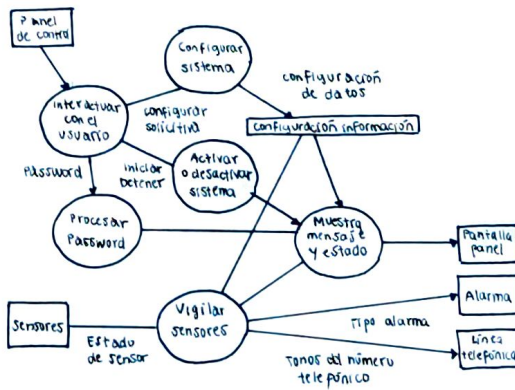 Panel
de control
Configurar
sistema
configuración
de datos
interactuar
con el
usuario
configurar
solicitud
configuración información
Password
iniciar
Detener
Activar
o desactivar
sistema
Procesar
Password
Muestra
mensaje
y estado
Pantalla
panel
Sensores
Estado
de sensor
Vigilar
sensores
Tipo alarma
Alarma
Tonos del número
telefónico
Línea
telefónica